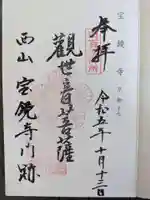 宝鏡寺
奉拝
令和五年十月十三日
觀世音菩薩
西山宝鏡寺門跡